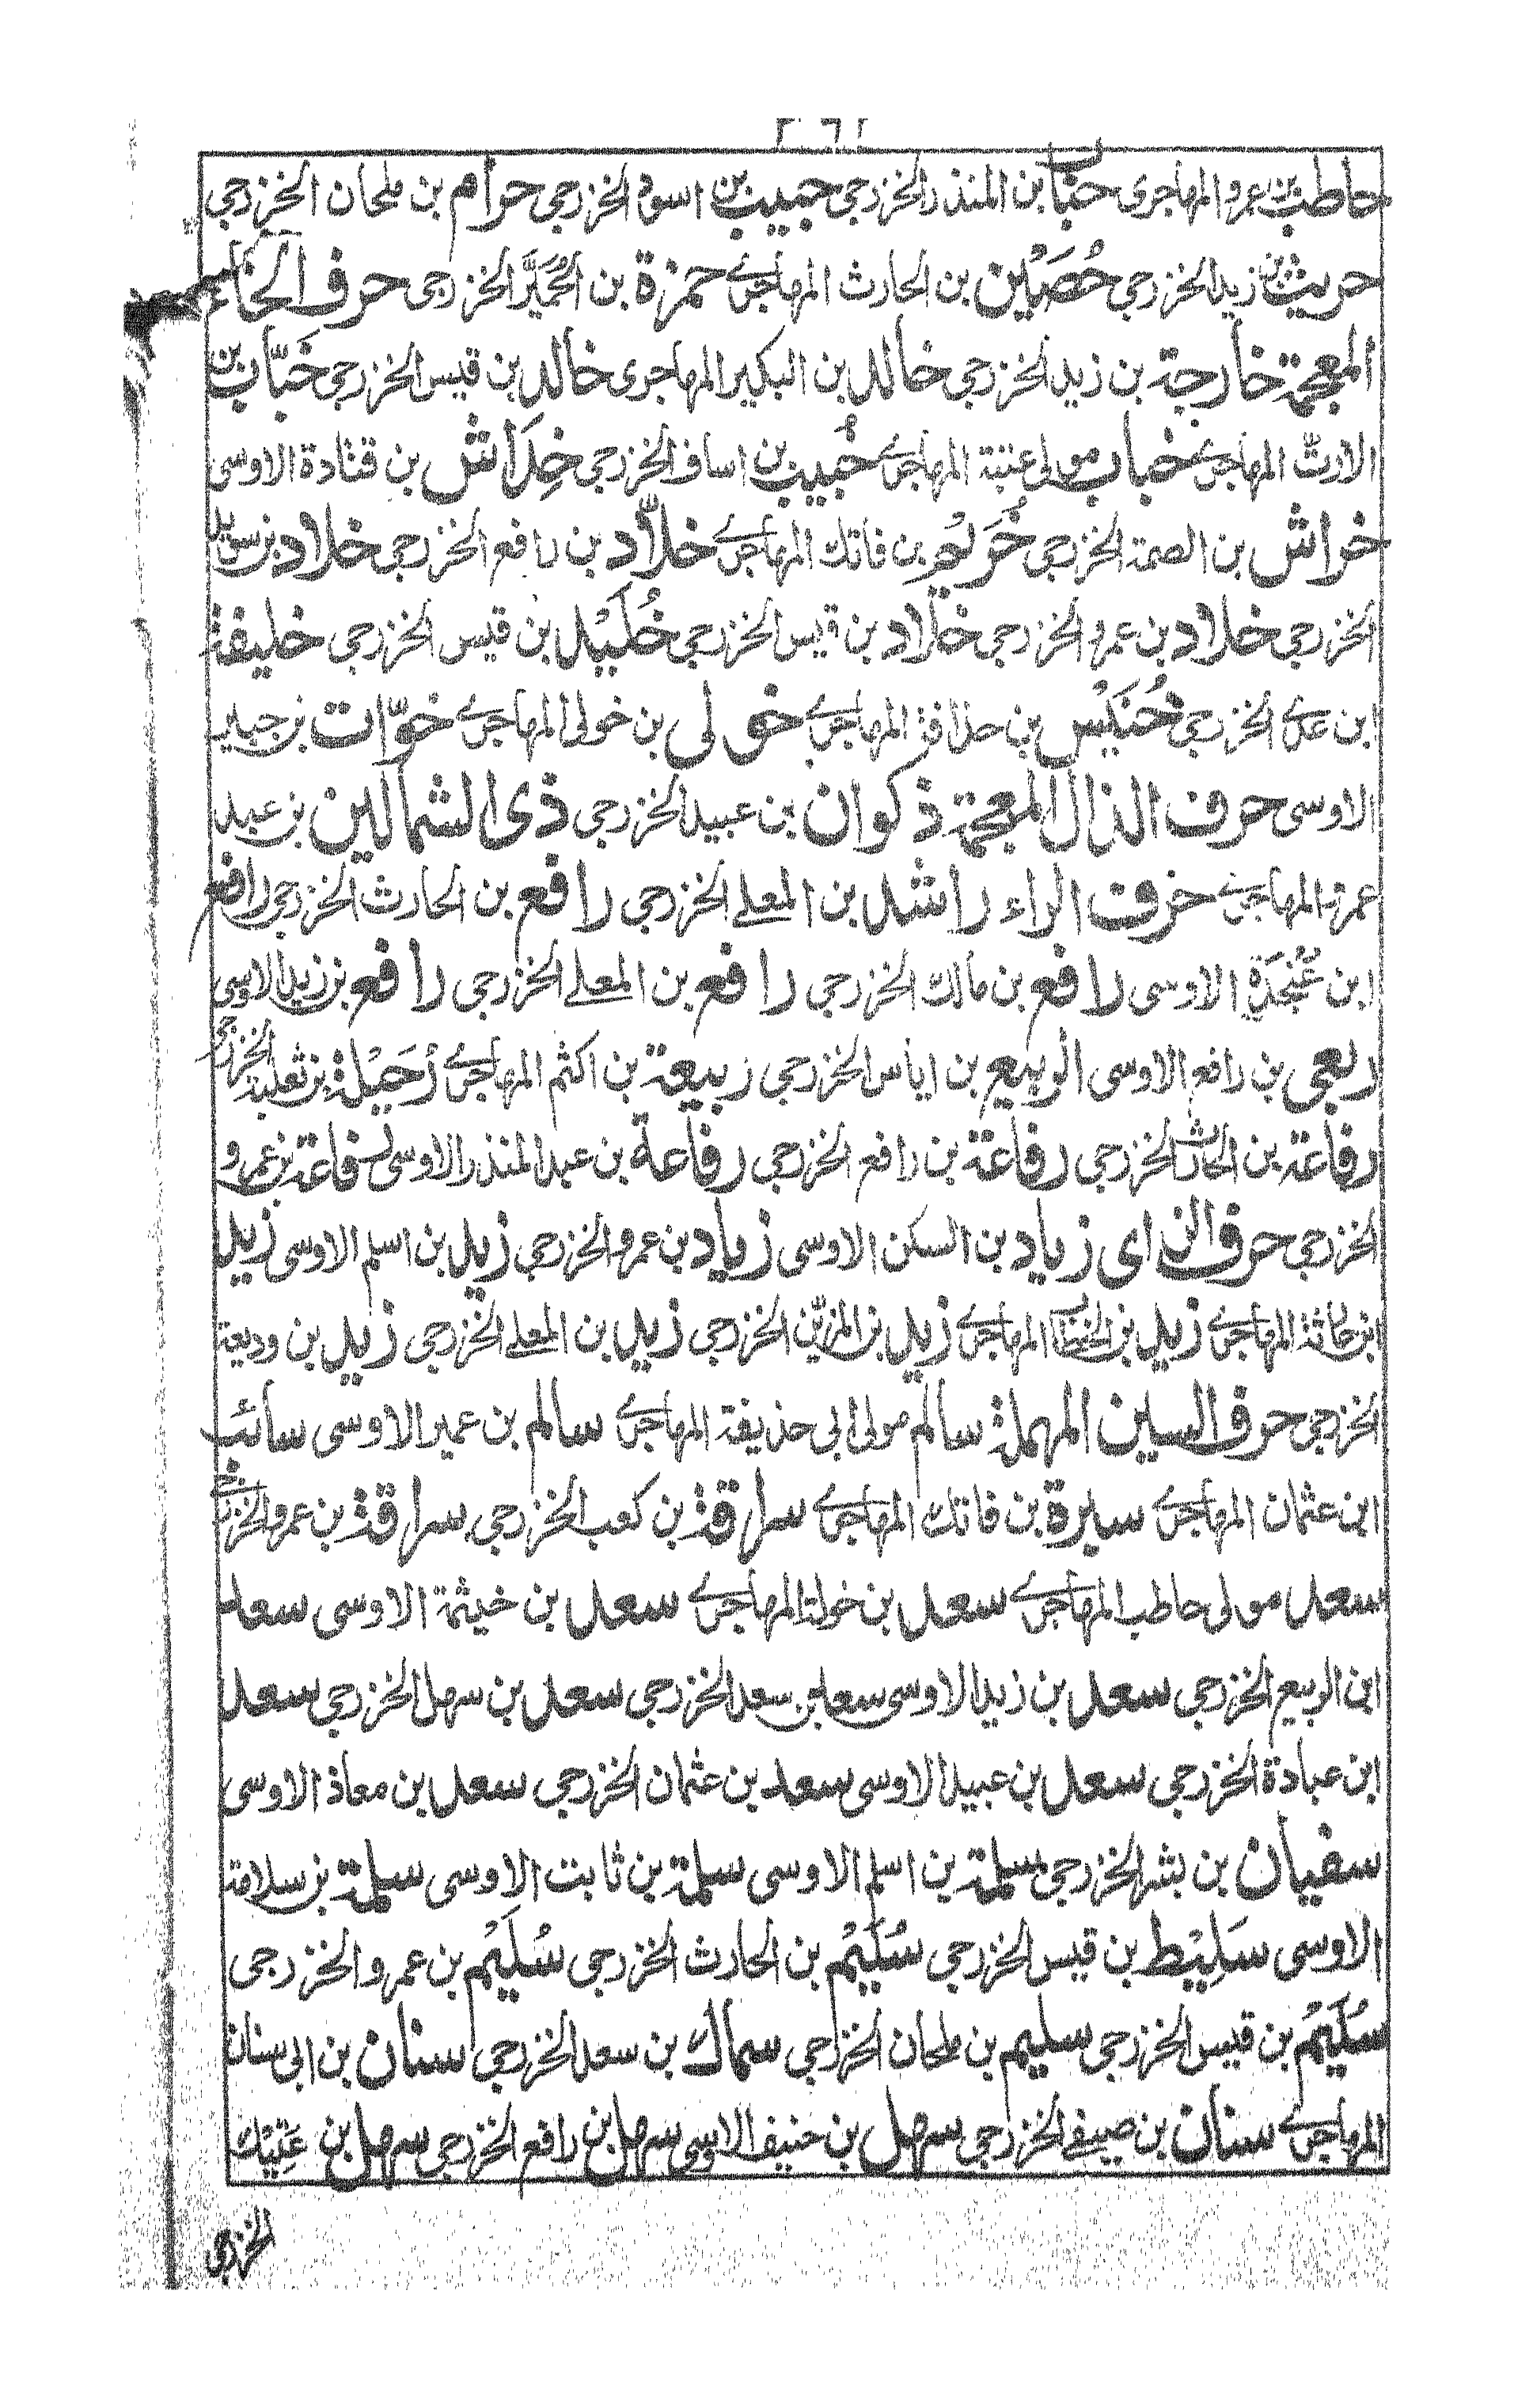 حاطب بن عمرو المهاجرى حباب بن المنذر الخزرجي حبيب بن اسود الخزرجي حرام بن ملحان الخزرجي
حريث بن زيد الخزرجي حُصَيْن بن الحارث المهاجرے حمزة بن الحُمَيَّر الخزرجى حرف الخاء
المعجمة خارجة بن زيد الخزرجي خالد بن البكير المهاجرى خالد بن قيس الخزرجي خَبّاب بن
الارتّ المهاجرے خباب مولى عتبة المهاجرے خُبيب بن اساف الخزرجي خِدَاش بن قتادة الاوسى
خراش بن الصمة الخزرجي خُرَيْم بن فاتك المهاجرے خلاّد بن رافع الخزرجي خلاد بن سويد
الخزرجي خلاد بن عمرو الخزرجي خلاد بن قيس الخزرجي خُلَيْد بن قيس الخزرجي خليفة
ابن عدے الخزرجي خُنَيْس بن حذافة المهاجرے خولى بن خولى المهاجرے خوّات بن جبير
الاوسى حرف الذال المعجمة ذكوان بن عبيد الخزرجي ذى الشمالين بن عبد
عمرة المهاجرے حرف الراء راشد بن المعلے الخزرجي رافع بن الحارث الخزرجي رافع
ابن عُنْجُدَةِ الاوسى رافع بن مالك الخزرجي رافع بن المعلے الخزرجي رافع بن زيد الاوسى
ربعي بن رافع الاوسى الربيع بن اياس الخزرجي ربيعة بن اكثم المهاجرے رُحَيْلة بن ثعلبة الخزرجي
رفاعة بن الحارث الخزرجي رفاعة بن رافع الخزرجي رفاعة بن عبد المنذر الاوسى رفاعة بن عمرو
الخزرجي حرف الزاى زياد بن السكن الاوسى زياد بن عمرو الخزرجي زيد بن اسلم الاوسى زيد
ابن حارثة المهاجرے زيد بن الخطاب المهاجرے زيد بن المزيّن الخزرجي زيد بن المعلے الخزرجي زيد بن وديعة
الخزرجي حرف السين المهملة سالم مولى ابى حذيفة المهاجرے سالم بن عمير الاوسى سائب
ابن عثمان المهاجرے سبرة بن فاتك المهاجرے سراقة بن كعب الخزرجي سراقة بن عمرو الخزرجي
سعد مولى حاطب المهاجرے سعد بن خولة المهاجرے سعد بن خيثمة الاوسى سعد
ابن الربيع الخزرجي سعد بن زيد الاوسى سعد بن سعد الخزرجي سعد بن سهل الخزرجي سعد
ابن عبادة الخزرجي سعد بن عبيد الاوسى سعد بن عثمان الخزرجي سعد بن معاذ الاوسى
سفيان بن بشر الخزرجي سلمة بن اسلم الاوسى سلمة بن ثابت الاوسى سلمة بن سلامة
الاوسى سَلِيْط بن قيس الخزرجي سُلَيْم بن الحارث الخزرجي سُلَيْم بن عمرو الخزرجى
سُلَيْم بن قيس الخزرجي سليم بن ملحان الخزرجي سماك بن سعد الخزرجي سنان بن ابى سنان
المهاجرے سنان بن صيفے الخزرجي سهل بن حنيف الاوسى سهل بن رافع الخزرجي سهل بن عَتِيْك
الخزرجي